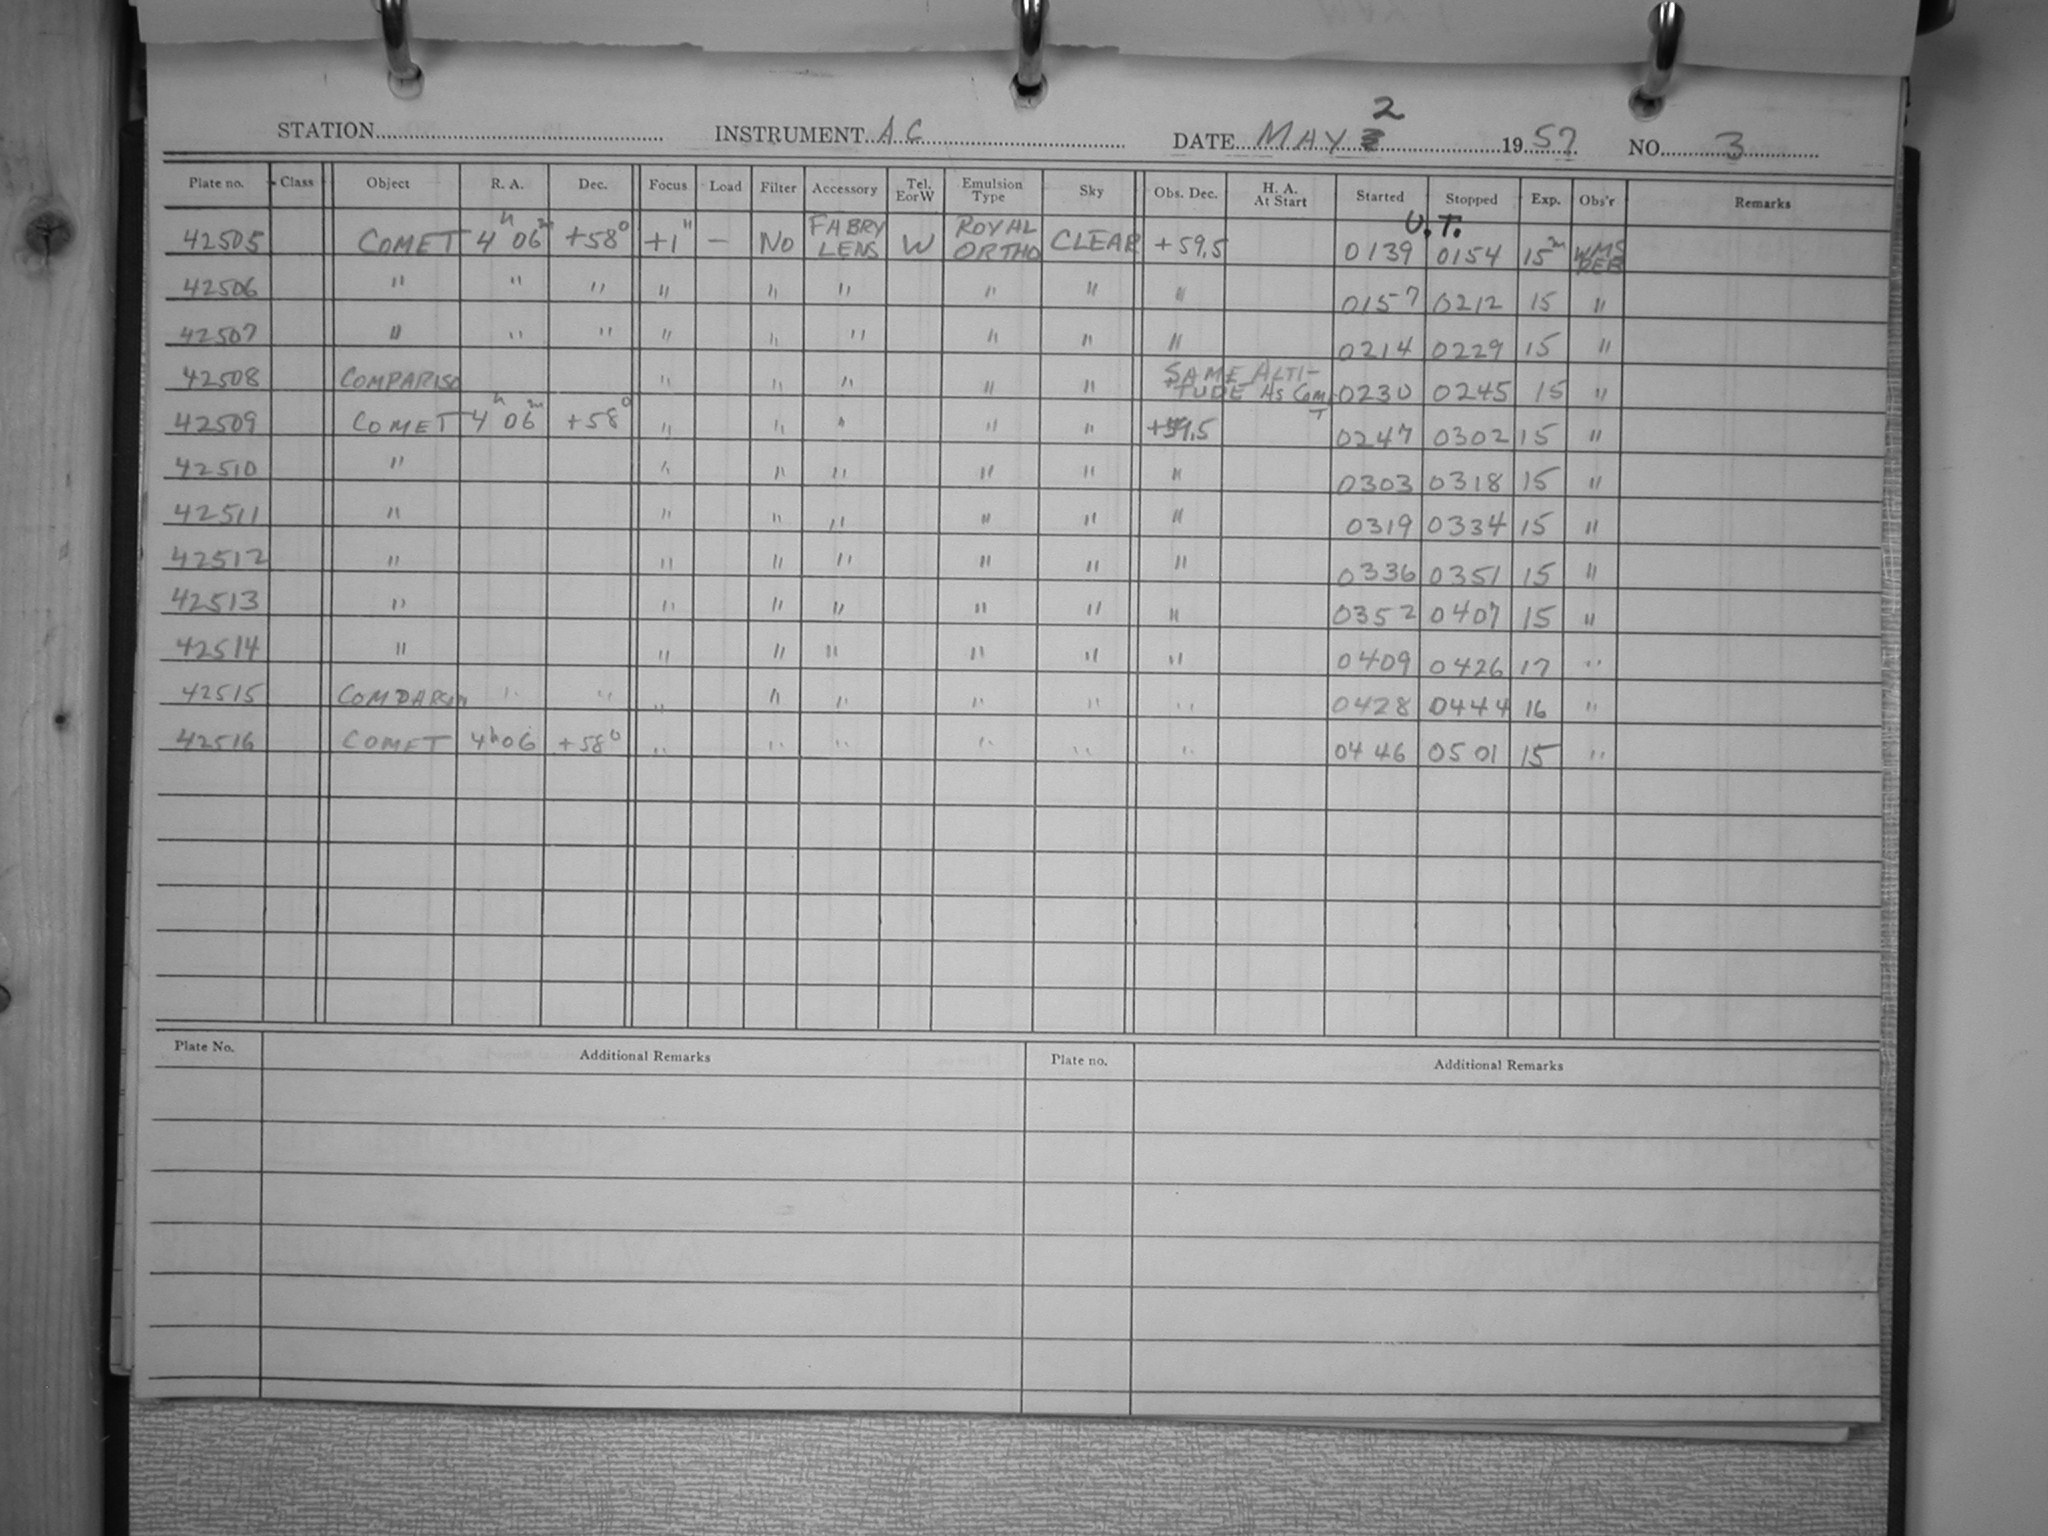 STATION INSTRUMENT A.C DATE MAY 2 1957 NO. 3
Plate no. Class Object R. A. Dec. Focus Load Filter Accessory Tel. EorW Emulsion Type Sky Obs. Dec. H. A. At Start Started Stopped Exp. Obs'r Remarks
U.T.
42505 COMET 4h 06m +58° +1" — NO FABRY LENS W ROYAL ORTHO CLEAR +59.5 0139 0154 15m WMS
42506 " " " " " " " " " 0157 0212 15 "
42507 " " " " " " " " " 0214 0229 15 "
42508 COMPARISO " " " " " SAME ALTI-TUDE AS COMT 0230 0245 15 "
42509 COMET 4h 06m +58° " " " " " +59.5 0247 0302 15 "
42510 " " " " " " " 0303 0318 15 "
42511 " " " " " " " 0319 0334 15 "
42512 " " " " " " " 0336 0351 15 "
42513 " " " " " " " 0352 0407 15 "
42514 " " " " " " " 0409 0426 17 "
42515 COMPARSON " " " " " " " " 0428 0444 16 "
42516 COMET 4h06 +58° " " " " " " 0446 0501 15 "
Plate No. Additional Remarks Plate no. Additional Remarks